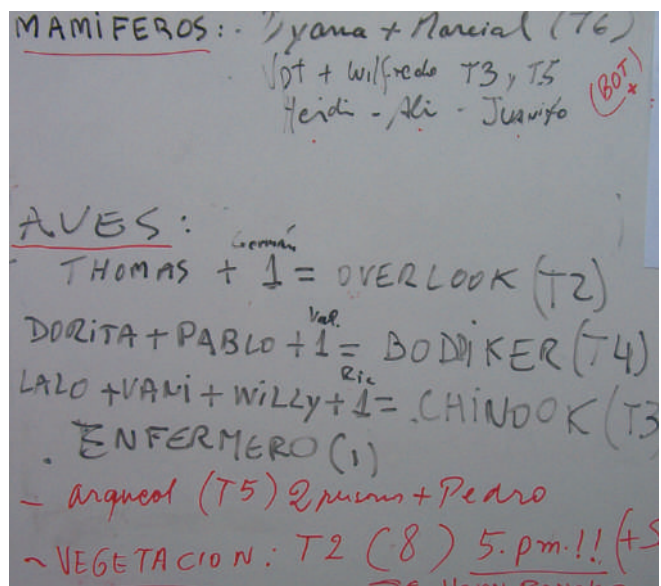 MAMIFEROS: - Dyana + Marcial (T6)
VDT + Wilfredo T3, T5
(BOT)
Heidi - Ali - JUANITO
AVES:
Germán
THOMAS + 1 = OVERLOOK (T2)
Val.
DORITA + PABLO + 1 = BODDIKER (T4)
Ric
LALO + VANI + WILLY + 1 = CHINOOK (T3
. ENFERMERO (1)
- arqueol (T5) 2 + Pedro
- VEGETACION: T2 (8) 5. pm.!! (+